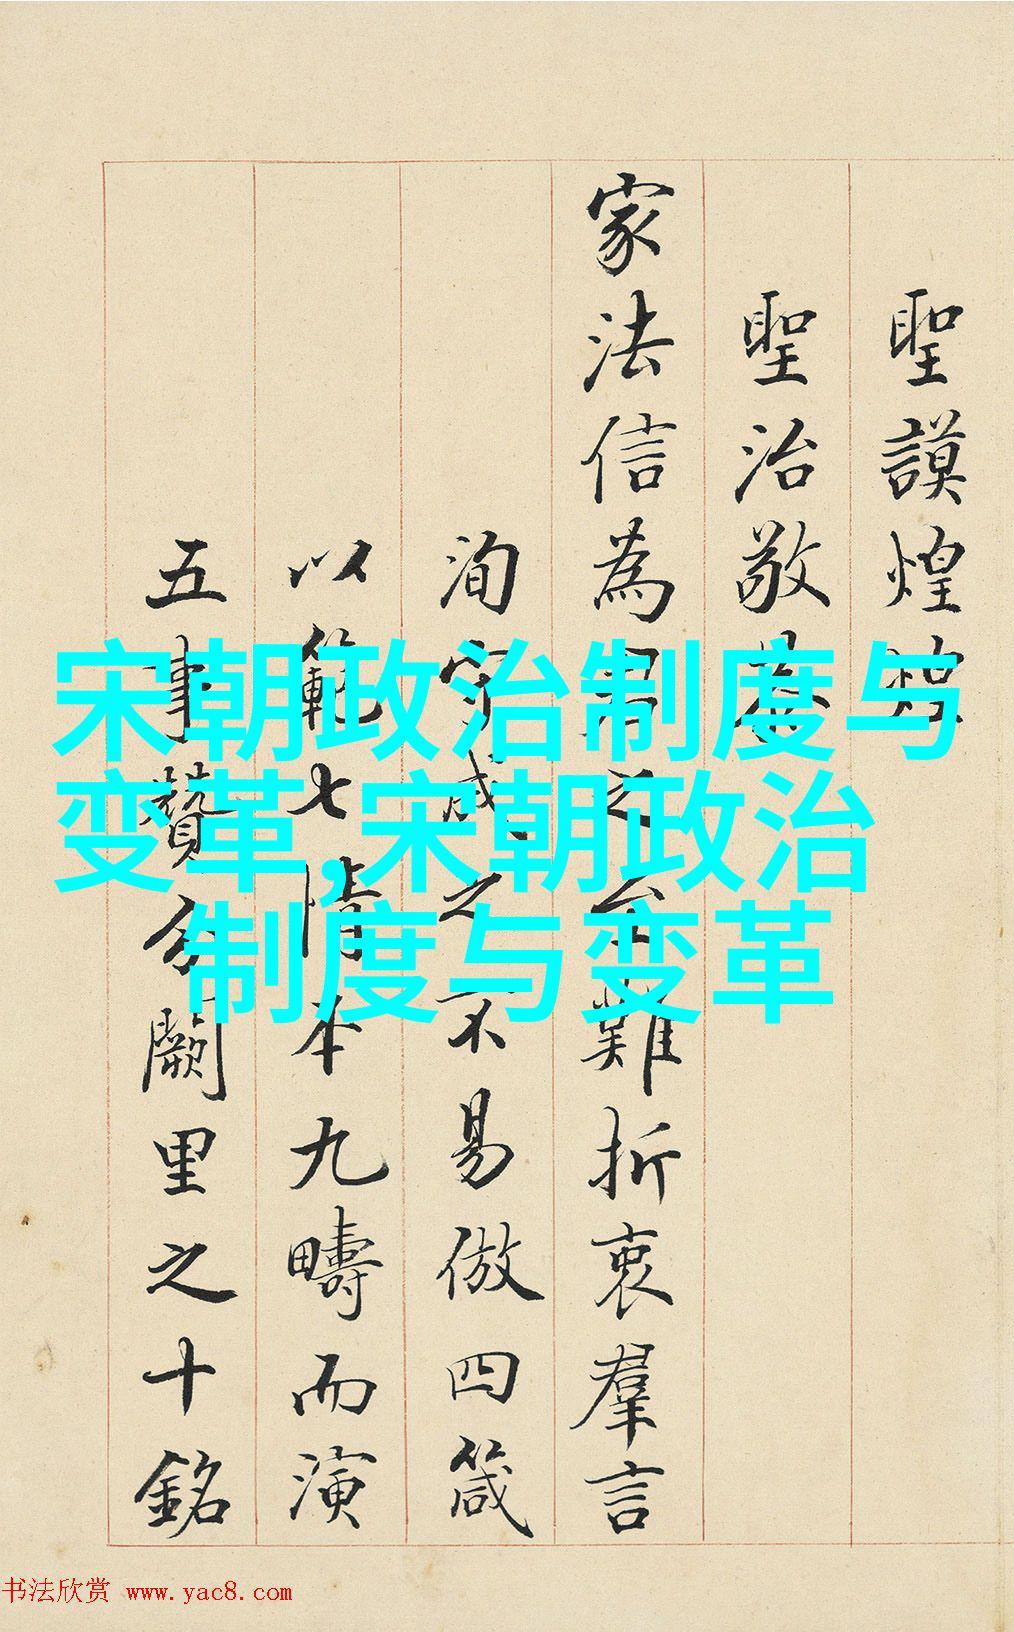 聖謨煌煌
聖治敬
家法信為之難折衷羣言
洵守成之不易倣四箴
以範七情本九疇而演
五事贊闕里之十銘
宋朝政治制度与
变革,宋朝政治
制度与变革
书法欣赏 www.yac8.com